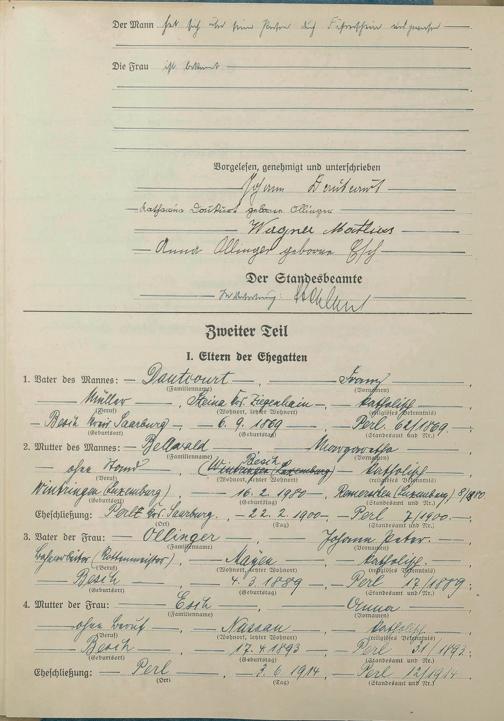 Der Mann hat sich über seine Person durch Führerschein ausgewiesen
Die Frau ist bekannt
Vorgelesen, genehmigt und unterschrieben
Johann
Katharina geborene Ollinger
Wagner Mathias
Anna Ollinger geborene Esch
Der Standesbeamte
In Vertretung:
Zweiter Teil
I. Eltern der Ehegatten
1. Vater des Mannes: Dautcourt, Franz
(Familienname) (Vornamen)
Müller, Steina Krs. Ziegenhain, katholisch
(Beruf) (Wohnort, letzter Wohnort) (religiöses Bekenntnis)
Besch Kreis Saarburg, 6. 9. 1869 Perl 62/1869.
(Geburtsort) (Geburtstag) (Standesamt und Nr.)
2. Mutter des Mannes: Bellwald Margaretha
(Familienname) (Vornamen)
Besch
ohne Stand, (Wintringen Luxemburg) katholisch
(Beruf) (Wohnort, letzter Wohnort) (religiöses Bekenntnis)
Wintringen (Luxemburg), 16. 2. Remerschen (Luxemburg)
(Geburtsort) (Geburtstag) (Standesamt und Nr.)
Eheschließung: Perl Krs Saarburg, 22. 2. 1900 Perl 7/1900.
(Ort) (Tag) (Standesamt und Nr.)
3. Vater der Frau: Ollinger, Johann Peter
(Familienname) (Vornamen)
(Rottenmeister), katholisch
(Beruf) (Wohnort, letzter Wohnort) (religiöses Bekenntnis)
Besch 4. 3. 1889 Perl 17/1889
(Geburtsort) (Geburtstag) (Standesamt und Nr.)
4. Mutter der Frau: Esch, Anna
(Familienname) (Vornamen)
ohne Beruf, katholisch
(Beruf) (Wohnort, letzter Wohnort) (religiöses Bekenntnis)
Besch, 17. 4. 1893 Perl 31/1893.
(Geburtsort) (Geburtstag) (Standesamt und Nr.)
Eheschließung: Perl, 6 1914 Perl 12/1914
(Ort) (Tag) (Standesamt und Nr.)